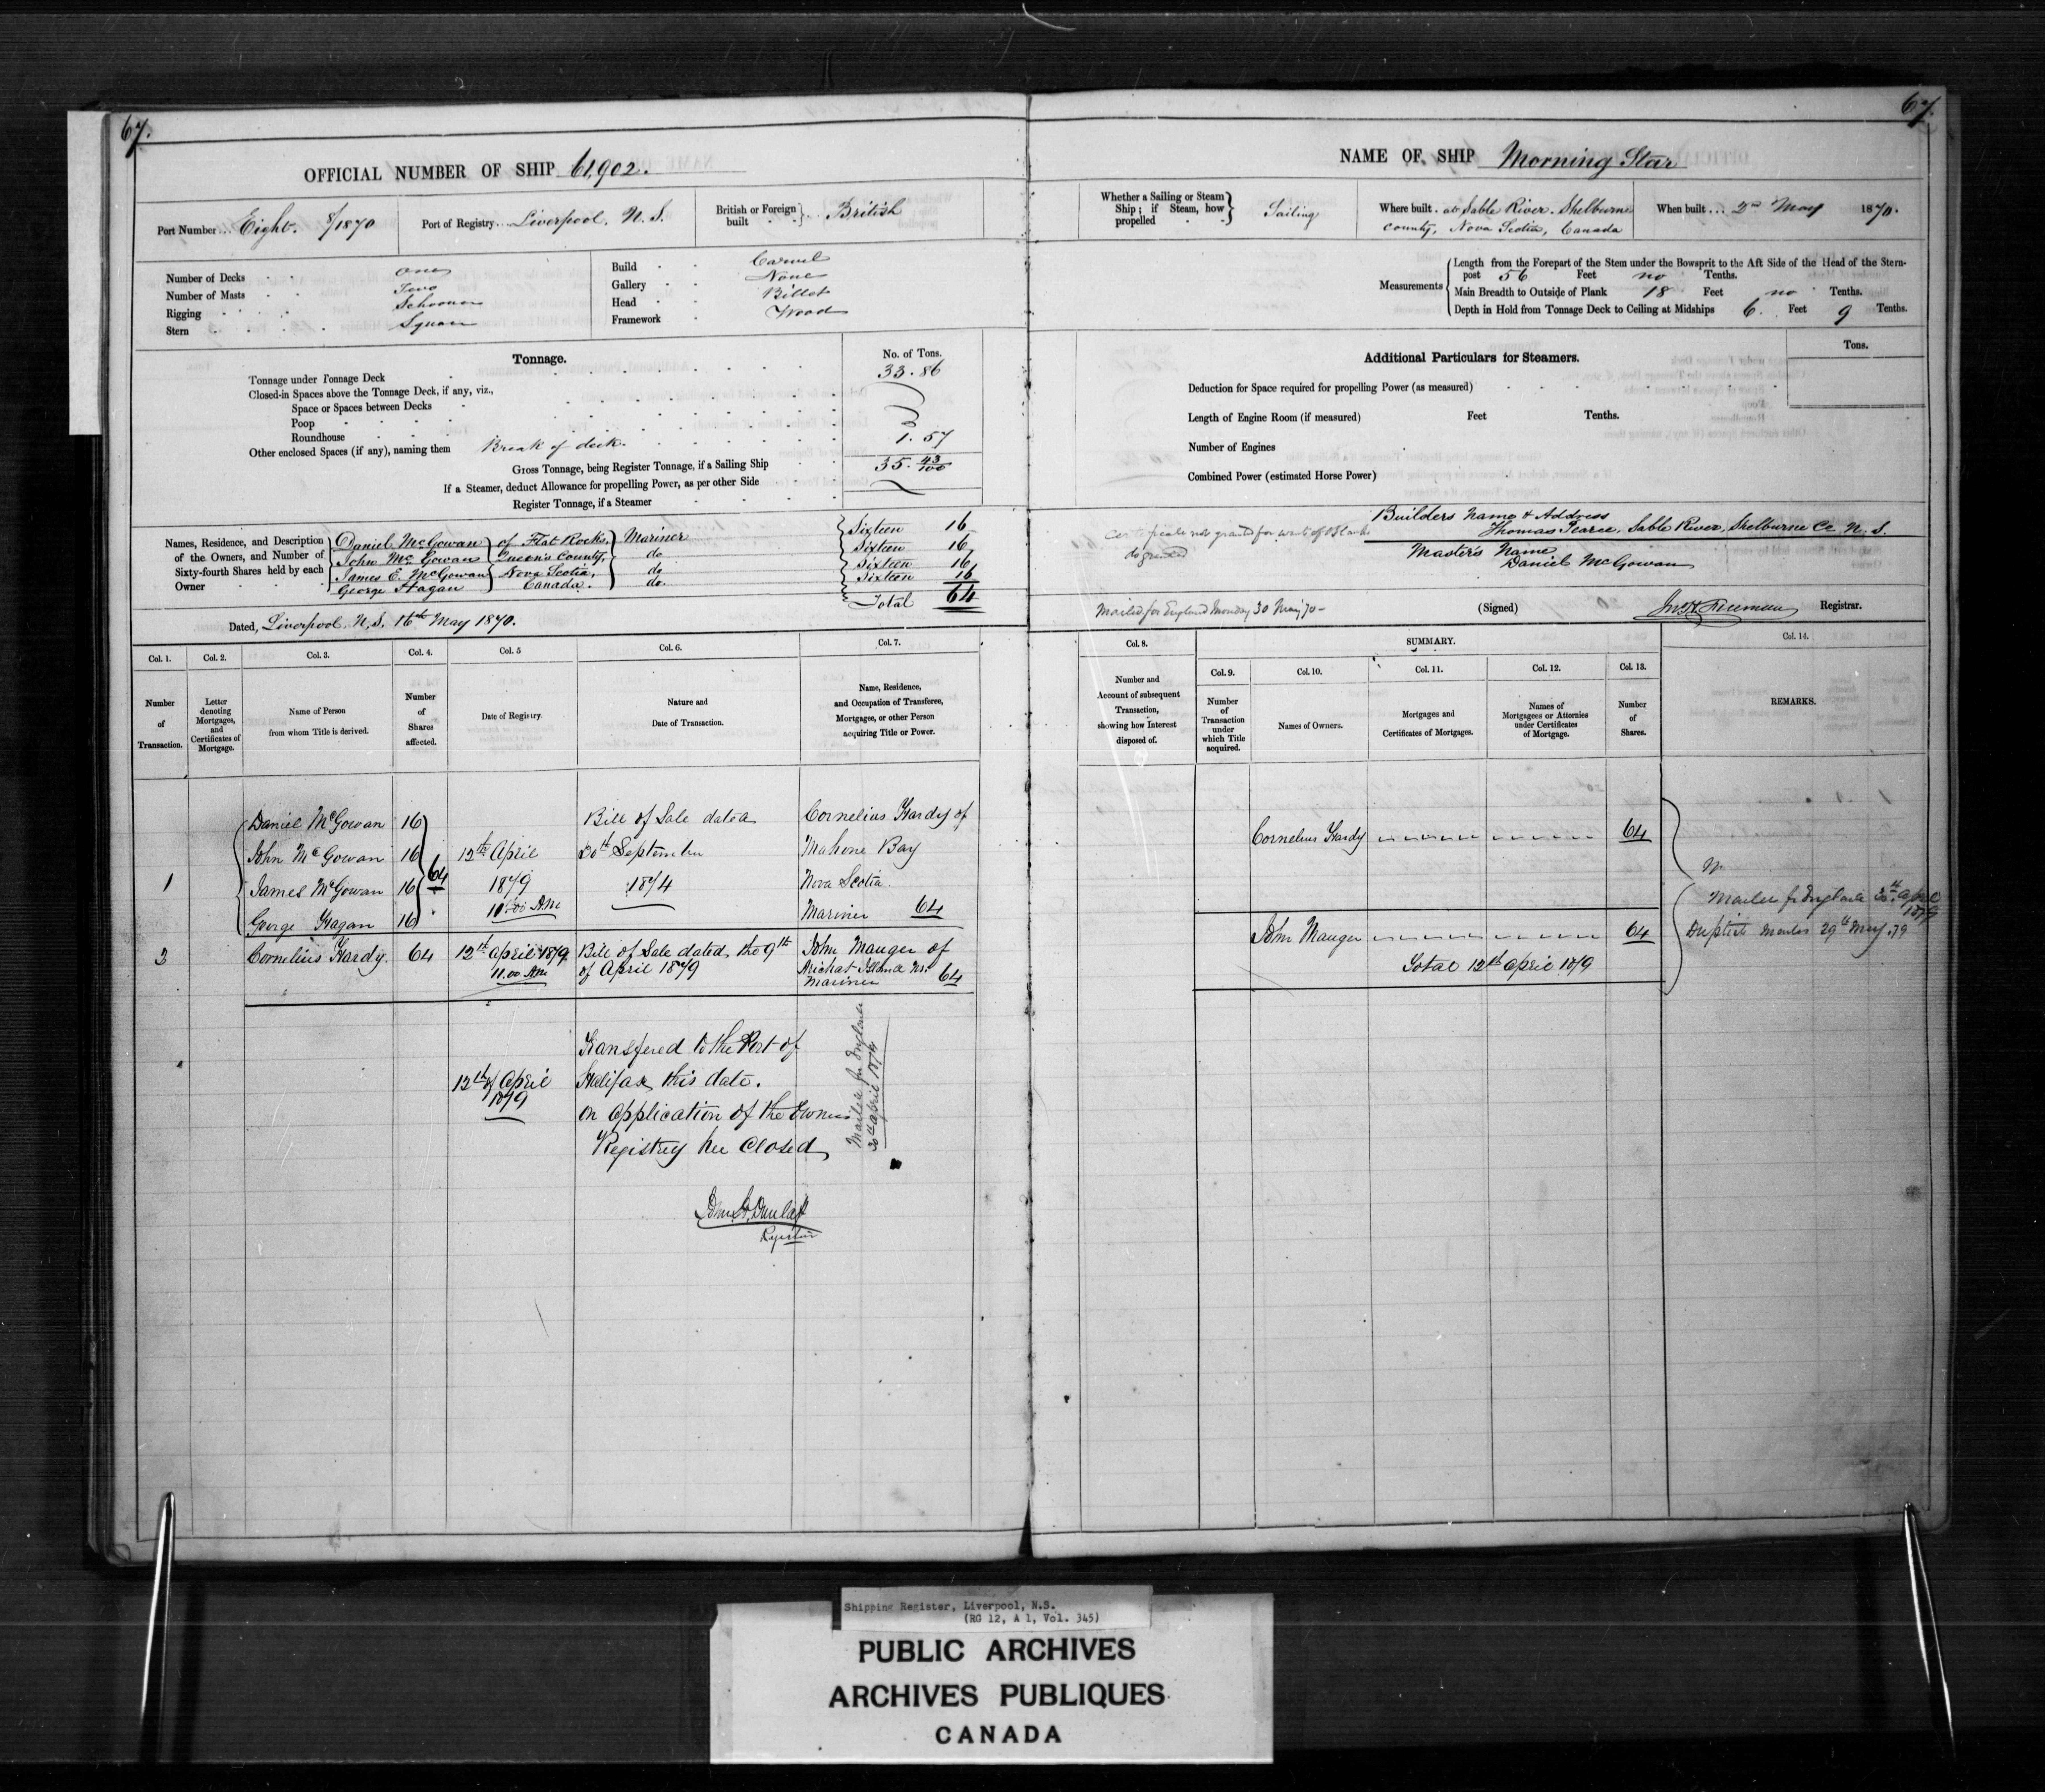 67.
OFFICIAL NUMBER OF SHIP 61,902.
Port Number ... Eight. 8/1870
Port of Registry ... Liverpool, N.S.
British or Foreign built ... British
Number of Decks One
Number of Masts Two
Rigging Schooner
Stern Square
Build Carvel
Gallery None
Head Billet
Framework Wood
Tonnage.
No. of Tons.
Tonnage under Tonnage Deck 33.86
Closed-in Spaces above the Tonnage Deck, if any, viz.,
Space or Spaces between Decks
Poop
Roundhouse
Other enclosed Spaces (if any), naming them Break of deck 1.57
Gross Tonnage, being Register Tonnage, if a Sailing Ship 35.43/100
If a Steamer, deduct Allowance for propelling Power, as per other Side
Register Tonnage, if a Steamer
Names, Residence, and Description of the Owners, and Number of Sixty-fourth Shares held by each Owner
Daniel McGowan of Flat Rocks, Mariner Sixteen 16
John McGowan Queen's County, do Sixteen 16
James E. McGowan Nova Scotia, do Sixteen 16
George Hagan Canada. do. Sixteen 16
Total 64
Dated, Liverpool, N.S. 16th May 1870.
Col. 1.
Col. 2.
Col. 3.
Col. 4.
Col. 5
Col. 6.
Col. 7.
Number of Transaction.
Letter denoting Mortgages, and Certificates of Mortgage.
Name of Person from whom Title is derived.
Number of Shares affected.
Date of Registry.
Nature and Date of Transaction.
Name, Residence, and Occupation of Transferee, Mortgagee, or other Person acquiring Title or Power.
Daniel McGowan 16 Bill of Sale dated Cornelius Hardy of
John McGowan 16 12th April 20th September Mahone Bay
1 James McGowan 16 64 1879 1874 Nova Scotia.
George Hagan 16 10.00 AM Mariner 64
2 Cornelius Hardy 64 12th April 1879 Bill of Sale dated the 9th John Mauger of
11.00 AM of April 1879 Arichat Island NS.
Mariner 64
Transfered to the Port of
12th of April Halifax this date.
1879
on application of the Owner
Registry here Closed
Mailed for England
20th April 1879
John S. Dunlap
Registrar
67.
NAME OF SHIP Morning Star
Whether a Sailing or Steam Ship; if Steam, how propelled Sailing
Where built . at Sable River, Shelburne
County, Nova Scotia, Canada
When built ... 2nd May 1870.
Measurements
Length from the Forepart of the Stem under the Bowsprit to the Aft Side of the Head of the Stern-
post 56 Feet no Tenths.
Main Breadth to Outside of Plank 18 Feet no Tenths.
Depth in Hold from Tonnage Deck to Ceiling at Midships 6. Feet 9 Tenths.
Additional Particulars for Steamers.
Tons.
Deduction for Space required for propelling Power (as measured)
Length of Engine Room (if measured) Feet Tenths.
Number of Engines
Combined Power (estimated Horse Power)
Certificate not granted for want of Blanks
do granted
Builders Name & Address
Thomas Pearce, Sable River, Shelburne Co. N.S.
Masters Name
Daniel McGowan
Mailed for England Monday 30 May 70 -
(Signed) Registrar.
Col. 8.
SUMMARY.
Col. 9.
Col. 10.
Col. 11.
Col. 12.
Col. 13.
Col. 14.
Number and Account of subsequent Transaction, showing how Interest disposed of.
Number of Transaction under which Title acquired.
Names of Owners.
Mortgages and Certificates of Mortgages.
Names of Mortgagees or Attornies under Certificates of Mortgage.
Number of Shares.
REMARKS.
Cornelius Hardy 64
John Mauger 64
Total 12th April 1879
Mailed for England 20th April
1879
mailed 29th May 79
Shipping Register, Liverpool, N.S.
(RG 12, A 1, Vol. 345)
PUBLIC ARCHIVES
ARCHIVES PUBLIQUES
CANADA